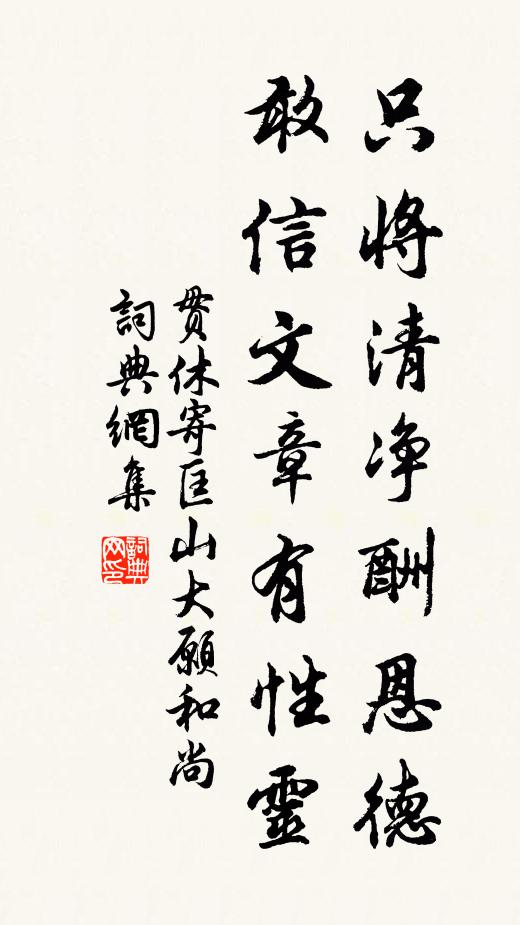 只將清净酬恩德
敢信文章有性靈
貫休寄匡山大願和尚
詞典網集
詞典網印